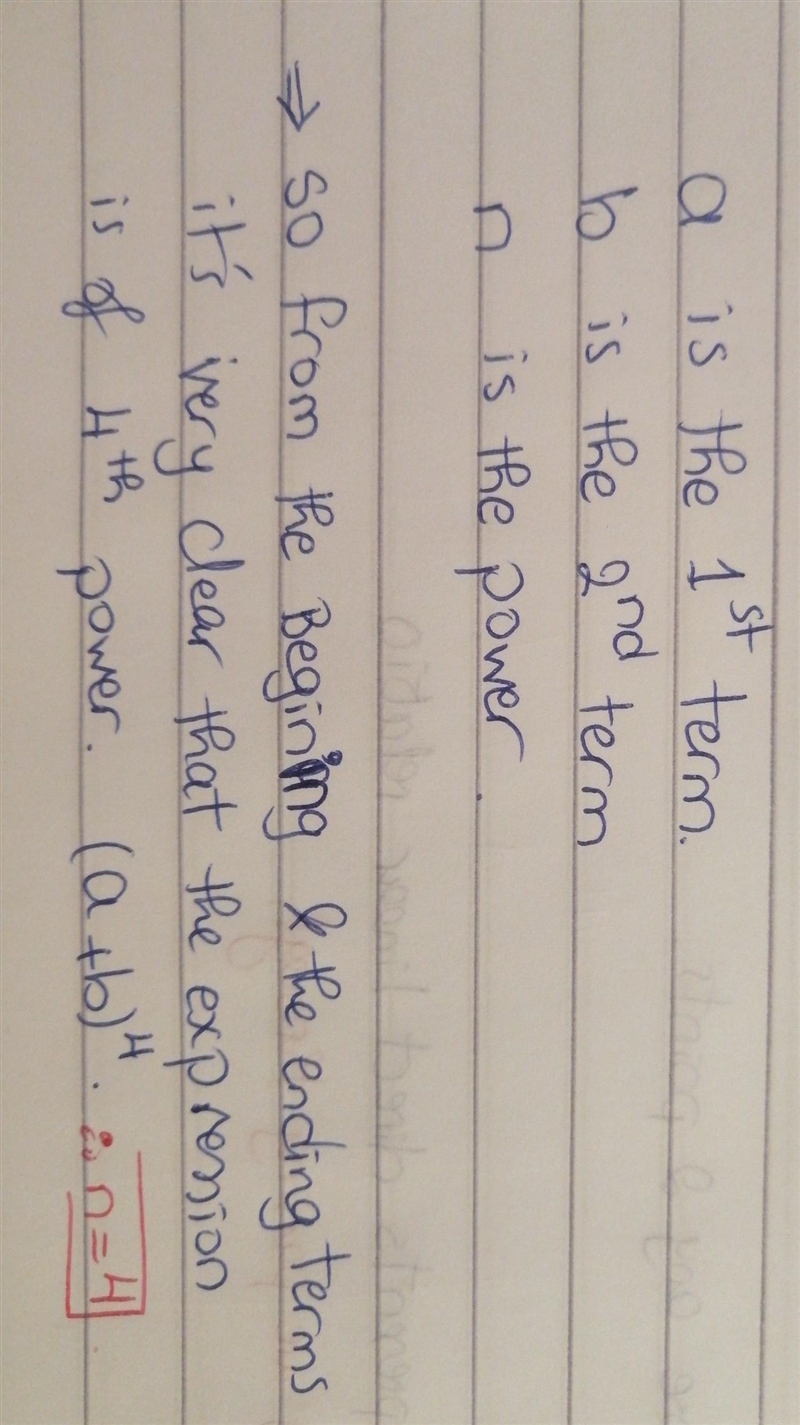 a is the 1st term.
b is the 2nd term
n is the power.
⇒ so from the Begining & the ending terms
it's very clear that the expression
is of 4th power. (a+b)⁴. ∴ n=4